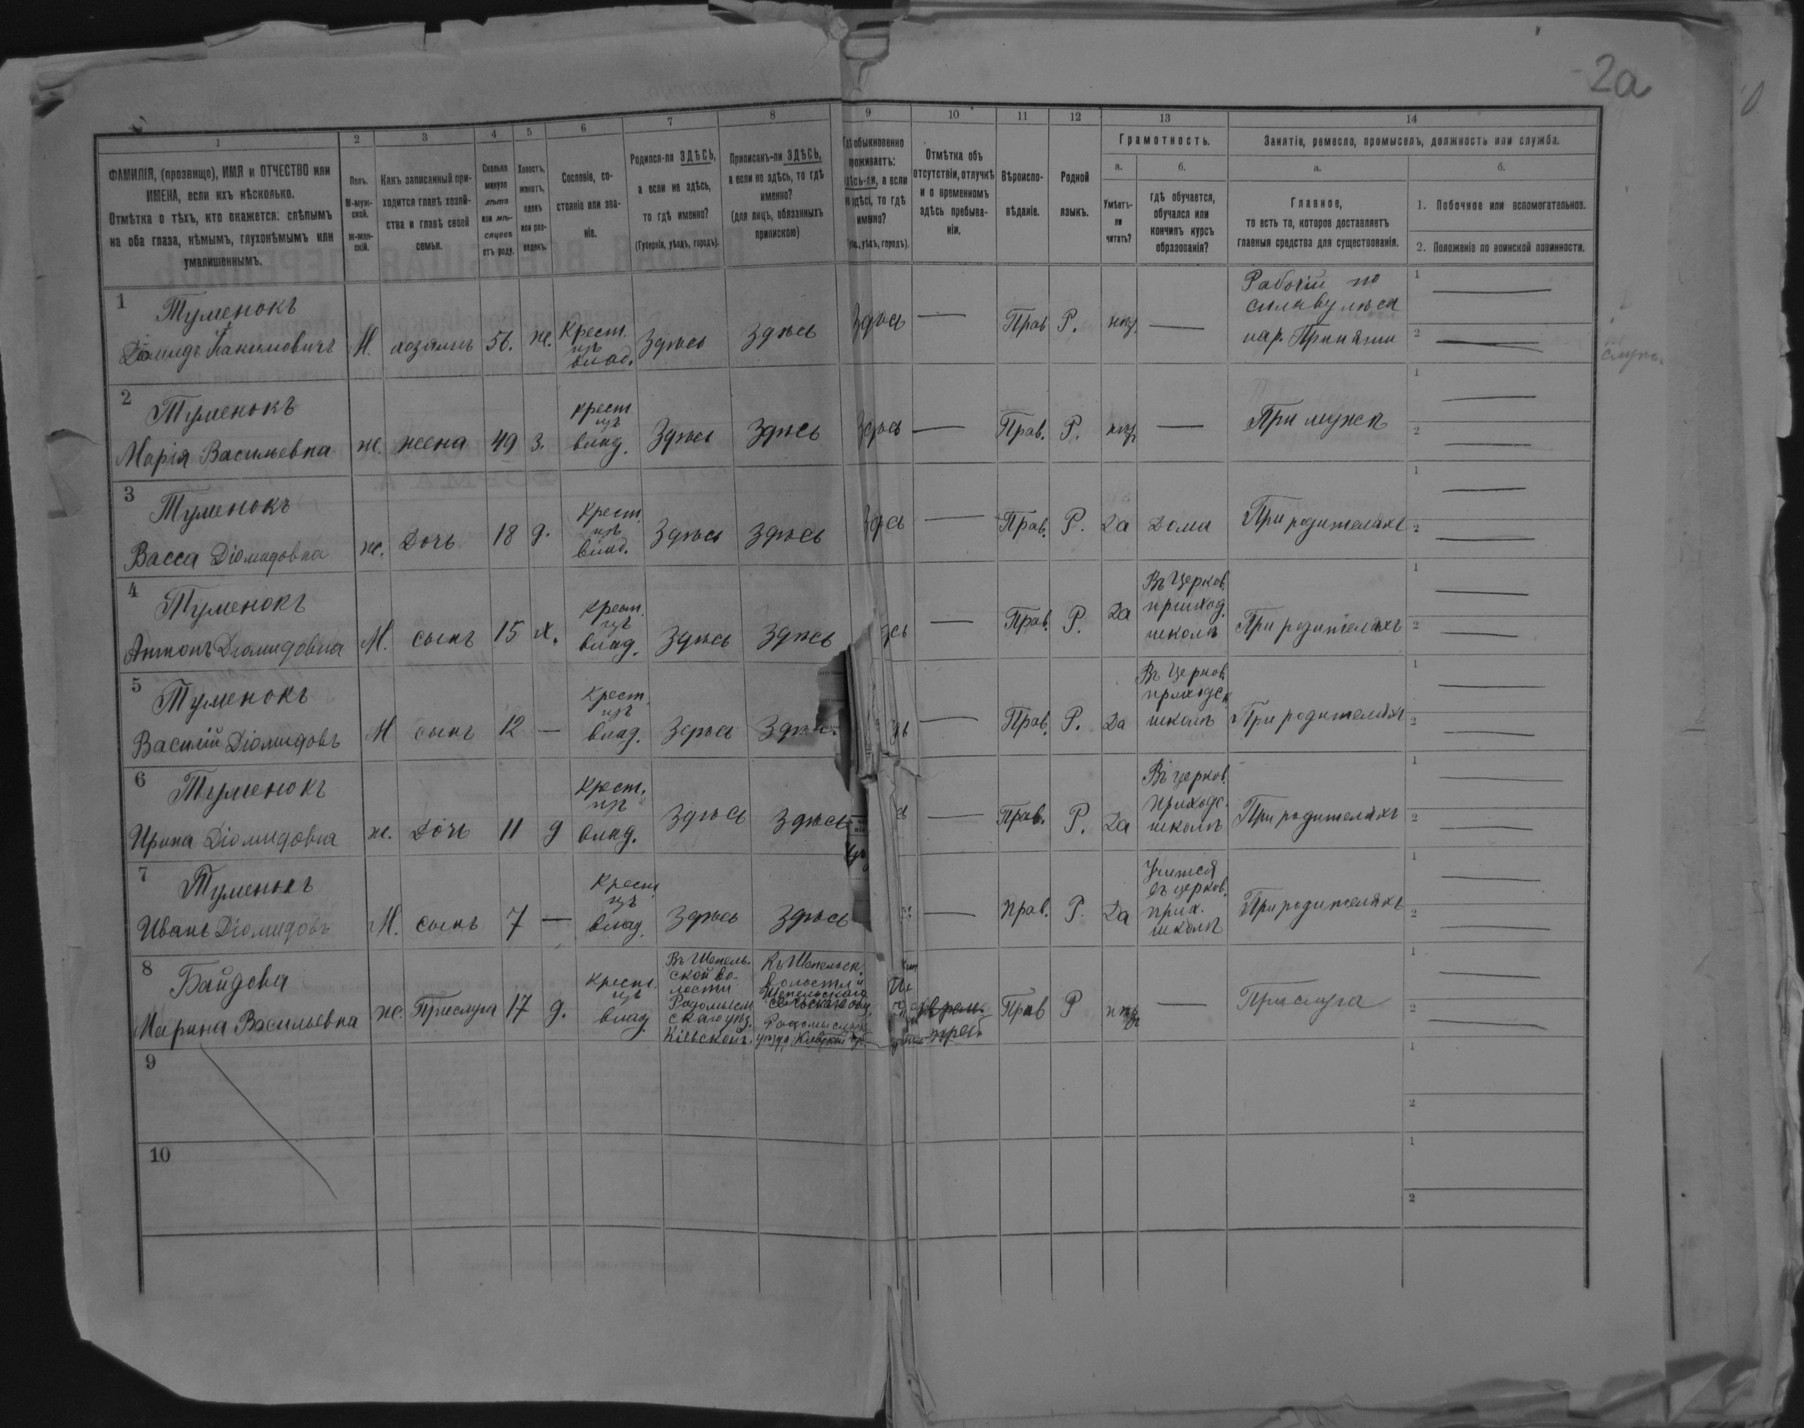 2а
1 2 3 4 5 6 7 8 9 10 11 12 13 14
ФАМИЛІЯ, (прозвище), ИМЯ и ОТЧЕСТВО или
ИМЕНА, если ихъ нѣсколько.
Отмѣтка о тѣхъ, кто окажется: слѣпымъ
на оба глаза, нѣмымъ, глухонѣмымъ или
умалишеннымъ.
Полъ.
М-муж-
ской.
Ж-жен-
скій.
Какъ записанный при-
ходится главѣ хозяй-
ства и главѣ своей
семьи.
Сколько
минуло
лѣтъ
или мѣ-
сяцевъ
отъ роду.
Холостъ,
женатъ,
вдовъ
или раз-
веденъ.
Сословіе, со-
стояніе или зва-
ніе.
Родился-ли ЗДѢСЬ,
а если не здѣсь,
то гдѣ именно?
(Губернія, уѣздъ, городъ).
Приписанъ-ли ЗДѢСЬ,
а если не здѣсь, то гдѣ
именно?
(для лицъ, обязанныхъ
припискою)
обыкновенно
проживаетъ:
а если
то гдѣ
именно?
уѣздъ, городъ).
Отмѣтка объ
отсутствіи, отлучкѣ
и о временномъ
здѣсь пребыва-
ніи.
Вѣроиспо-
вѣданіе.
Родной
языкъ.
Грамотность.
а.
Умѣетъ-
ли
читать?
б.
гдѣ обучается,
обучался или
кончилъ курсъ
образованія?
Занятіе, ремесло, промыселъ, должность или служба.
а.
Главное,
то есть то, которое доставляетъ
главныя средства для существованія.
б.
1. Побочное или вспомогательное.
2. Положеніе по воинской повинности.
1 Туменокъ
М. хозяинъ 56. ж. Крест. изъ влад. Здѣсь Здѣсь Здѣсь — Прав Р. — Рабочій по
сплаву лѣса
1 —
2 —
2 Туменокъ
Марія Васильевна ж. жена 49 з. Крест изъ влад. Здѣсь Здѣсь Здѣсь — Прав. Р. — При мужѣ
1 —
2 —
3 Туменокъ
Васса Діомидовна ж. Дочь 18 д. Крест. изъ влад. Здѣсь Здѣсь — Прав. Р. Да Дома При родителяхъ
1 —
2 —
4 Туменокъ
Антонъ Діомидовна М. сынъ 15 х. Крест. изъ влад. Здѣсь Здѣсь — Прав. Р. Да Въ Церков. приход. школѣ При родителяхъ
1 —
2 —
5 Туменокъ
Василій Діомидовъ М сынъ 12 — Крест. изъ влад. Здѣсь — Прав. Р. Да Въ Церков. приходск школѣ При родителяхъ
1 —
2 —
6 Туменокъ
Ирина Діомидовна ж. Дочь 11 д Крест. изъ влад. Здѣсь Здѣсь — Прав. Р. Да Въ церков. приходс. школѣ При родителяхъ
1 —
2 —
7 Туменокъ
Иванъ Діомидовъ М. сынъ 7 — Крест изъ влад. Здѣсь Здѣсь — Прав. Р. Да Учится въ церков. прих. школѣ При родителяхъ
1 —
2 —
8 Байдова
Марина Васильевна ж. Прислуга 17 д. Крест изъ влад
Въ Шепель-
ской во-
лости
Радомысль
скаго уѣз.
Кіевской г.
Къ Шепельск.
волости и
Шепельскаго
сельскаго общ.
уѣзда Кіевской
Прав Р — Прислуга
1 —
2 —
9
1
2
10
1
2